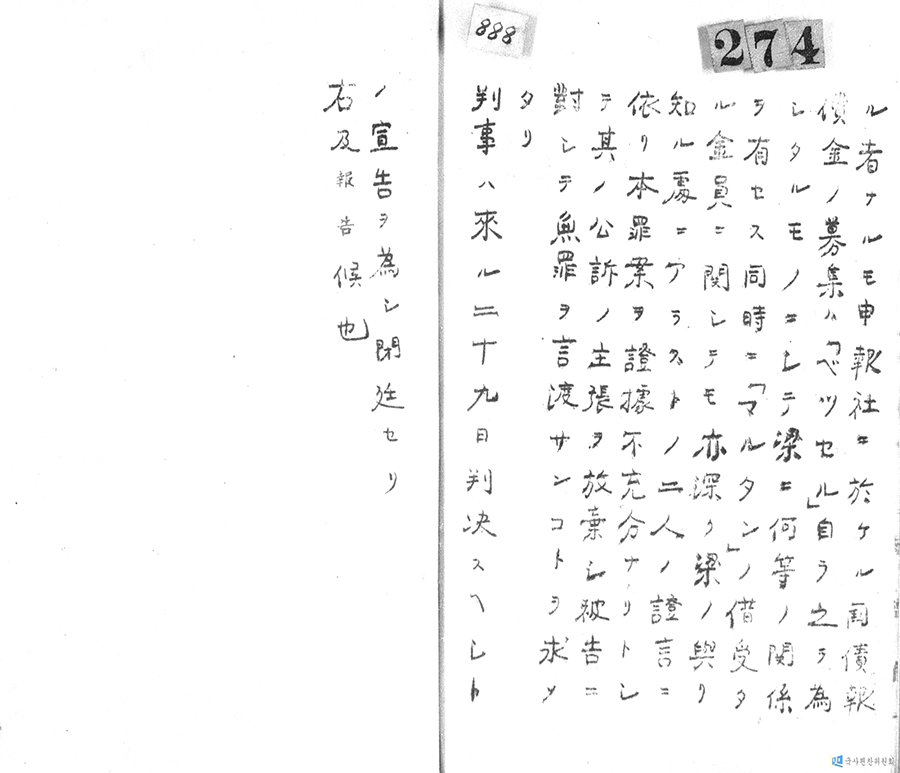 888
274
ル者ナルモ申報社ニ於ケル国債報
償金ノ募集ハ「ベツセル」自ラ之ヲ為
シタルモノニシテ梁ニ何等ノ関係
ヲ有セス同時ニ「マルタン」ノ借受タ
ル金員ニ関シテモ亦深ク梁ノ與リ
知ル處ニアラストノ二人ノ證言ニ
依リ本罪案ヲ證據不充分ナリトシ
テ其ノ公訴ノ主張ヲ放棄シ被告ニ
對シテ無罪ヲ言渡サンコトヲ求メ
タリ
判事ハ來ル二十九日判决スヘシト
ノ宣告ヲ為シ閉廷セリ
右及報告候也
국사편찬위원회